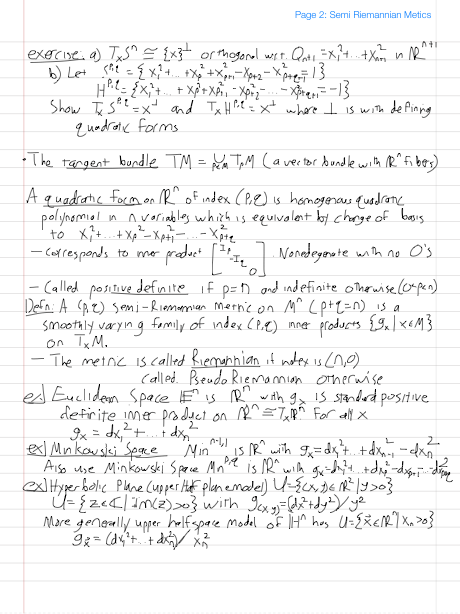 Page 2: Semi Riemannian Metics
exercise: a) TₓSⁿ ≅ {x}^⊥ orthogonal w.r.t. Qₙ₊₁ = x₁²+...+xₙ₊₁² in ℝⁿ⁺¹
b) Let S^{p,q} = {x₁²+...+xₚ²+xₚ₊₁²-xₚ₊₂²-...-xₚ₊q₊₁²=1}
H^{p,q} = {x₁²+...+xₚ²+xₚ₊₁²-xₚ₊₂²-...-xₚ₊q₊₁²=-1}
Show TₓS^{p,q} = x^⊥ and TₓH^{p,q} = x^⊥ where ⊥ is with defining
quadratic forms
• The tangent bundle TM = ∪_{p∈M} TₚM (a vector bundle with ℝⁿ fibers)
A quadratic form on ℝⁿ of index (p,q) is homogenous quadratic
polynomial in n variables which is equivalent by change of basis
to x₁²+...+xₚ²-xₚ₊₁²-...-xₚ₊q²
– corresponds to inner product [Iₚ -I_q 0]. Nondegenerate with no 0's
– Called positive definite if p=n and indefinite otherwise (0<p<n)
Defn: A (p,q) semi-Riemannian metric on Mⁿ (p+q=n) is a
smoothly varying family of index (p,q) inner products {gₓ | x∈M}
on TₓM.
– The metric is called Riemannian if index is (n,0)
called Pseudo Riemannian otherwise
ex) Euclidean Space 𝔼ⁿ is ℝⁿ with gₓ is standard positive
definite inner product on ℝⁿ ≅ Tₓℝⁿ for all x
gₓ = dx₁²+...+dxₙ²
ex) Minkowski Space Min^{n-1,1} is ℝⁿ with gₓ=dx₁²+...+dxₙ₋₁²-dxₙ²
Also use Minkowski Space Min^{p,q} is ℝⁿ with gₓ=dx₁²+...+dxₚ²-dxₚ₊₁²-...-dxₚ₊q²
ex) Hyperbolic Plane (upper Half plane model) U={(x,y)∈ℝ² | y>0}
U={z∈ℂ | Im(z)>0} with g_{(x,y)}=(dx²+dy²)/y²
More generally upper half space model of ℍⁿ has U={x⃗∈ℝⁿ | xₙ>0}
g_{x⃗} = (dx₁²+...+dxₙ²)/xₙ²